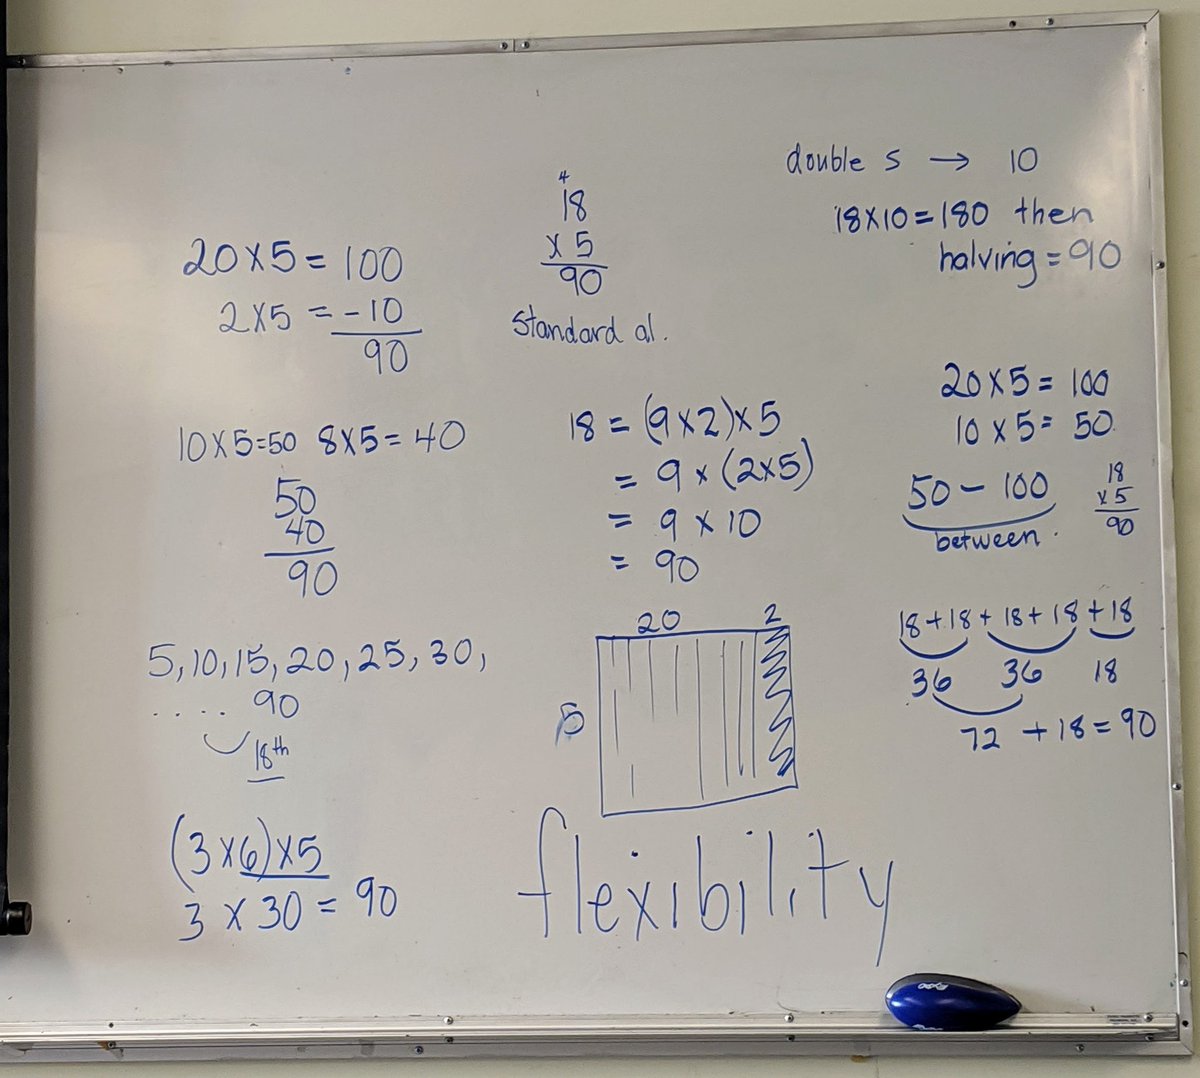 20×5 = 100
2×5 = -10
90
4
18
× 5
90
Standard al.
double 5 → 10
18×10=180 then
halving = 90
10×5=50 8×5 = 40
50
40
90
18 = (9×2)×5
= 9 × (2×5)
= 9 × 10
= 90
20×5 = 100
10 × 5 = 50
50 - 100
between.
18
× 5
90
5, 10, 15, 20, 25, 30,
.... 90
18th
20 2
5
18+18+18+18+18
36 36 18
72 +18=90
(3×6)×5
3 × 30 = 90
flexibility